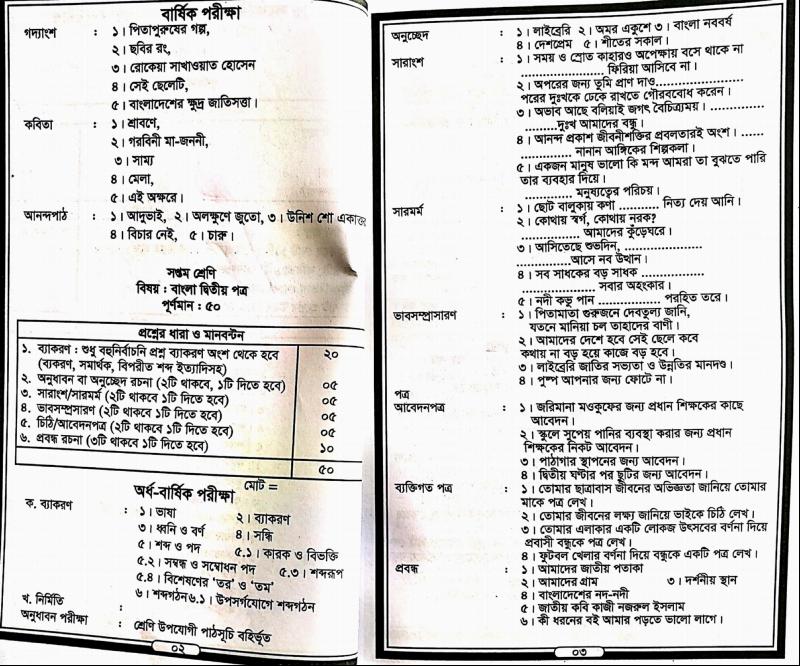 বার্ষিক পরীক্ষা
গদ্যাংশ : ১। পিতাপুরুষের গল্প,
২। ছবির রং,
৩। রোকেয়া সাখাওয়াত হোসেন
৪। সেই ছেলেটি,
৫। বাংলাদেশের ক্ষুদ্র জাতিসত্তা।
কবিতা : ১। শ্রাবণে,
২। গরবিনী মা-জননী,
৩। সাম্য
৪। মেলা,
৫। এই অক্ষরে।
আনন্দপাঠ : ১। আদুভাই, ২। অলক্ষুণে জুতো, ৩। উনিশ শো একাত্তর
৪। বিচার নেই, ৫। চারু।
সপ্তম শ্রেণি
বিষয় : বাংলা দ্বিতীয় পত্র
পূর্ণমান : ৫০
প্রশ্নের ধারা ও মানবন্টন
১. ব্যাকরণ : শুধু বহুনির্বাচনি প্রশ্ন ব্যাকরণ অংশ থেকে হবে ২০
(ব্যকরণ, সমার্থক, বিপরীত শব্দ ইত্যাদিসহ)
২. অনুধাবন বা অনুচ্ছেদ রচনা (২টি থাকবে, ১টি দিতে হবে) ০৫
৩. সারাংশ/সারমর্ম (২টি থাকবে ১টি দিতে হবে) ০৫
৪. ভাবসম্প্রসারণ (২টি থাকবে ১টি দিতে হবে) ০৫
৫. চিঠি/আবেদনপত্র (২টি থাকবে ১টি দিতে হবে) ০৫
৬. প্রবন্ধ রচনা (৩টি থাকবে ১টি দিতে হবে) ১০
৫০
মোট =
অর্ধ-বার্ষিক পরীক্ষা
ক. ব্যাকরণ : ১। ভাষা ২। ব্যাকরণ
৩। ধ্বনি ও বর্ণ ৪। সন্ধি
৫। শব্দ ও পদ ৫.১। কারক ও বিভক্তি
৫.২। সম্বন্ধ ও সম্বোধন পদ ৫.৩। শব্দরূপ
৫.৪। বিশেষণের ‘তর’ ও ‘তম’
৬। শব্দগঠন ৬.১। উপসর্গযোগে শব্দগঠন
খ. নির্মিতি :
অনুধাবন পরীক্ষা : শ্রেণি উপযোগী পাঠসূচি বহির্ভূত
০২
অনুচ্ছেদ : ১। লাইব্রেরি ২। অমর একুশে ৩। বাংলা নববর্ষ
৪। দেশপ্রেম ৫। শীতের সকাল।
সারাংশ : ১। সময় ও স্রোত কাহারও অপেক্ষায় বসে থাকে না
........................ ফিরিয়া আসিবে না।
২। অপরের জন্য তুমি প্রাণ দাও........................
পরের দুঃখকে ঢেকে রাখতে গৌরববোধ করেন।
৩। অভাব আছে বলিয়াই জগৎ বৈচিত্র্যময়। ..............
.........দুঃখ আমাদের বন্ধু।
৪। আনন্দ প্রকাশ জীবনীশক্তির প্রবলতারই অংশ। ......
............... নানান আঙ্গিকের শিল্পকলা।
৫। একজন মানুষ ভালো কি মন্দ আমরা তা বুঝতে পারি
তার ব্যবহার দিয়ে।
.............. মনুষ্যত্বের পরিচয়।
সারমর্ম : ১। ছোট বালুকায় কণা ........... নিত্য দেয় আনি।
২। কোথায় স্বর্গ, কোথায় নরক?
................ আমাদের কুঁড়েঘরে।
৩। আসিতেছে শুভদিন, ......................
...............আসে নব উত্থান।
৪। সব সাধকের বড় সাধক ..................
..................... সবার অহংকার।
৫। নদী কভু পান .................. পরহিত তরে।
ভাবসম্প্রাসারণ : ১। পিতামাতা গুরুজনে দেবতুল্য জানি,
যতনে মানিয়া চল তাহাদের বাণী।
২। আমাদের দেশে হবে সেই ছেলে কবে
কথায় না বড় হয়ে কাজে বড় হবে।
৩। লাইব্রেরি জাতির সভ্যতা ও উন্নতির মানদণ্ড।
৪। পুষ্প আপনার জন্য ফোটে না।
পত্র
আবেদনপত্র : ১। জরিমানা মওকুফের জন্য প্রধান শিক্ষকের কাছে
আবেদন।
২। স্কুলে সুপেয় পানির ব্যবস্থা করার জন্য প্রধান
শিক্ষকের নিকট আবেদন।
৩। পাঠাগার স্থাপনের জন্য আবেদন।
৪। দ্বিতীয় ঘন্টার পর ছুটির জন্য আবেদন।
ব্যক্তিগত পত্র : ১। তোমার ছাত্রাবাস জীবনের অভিজ্ঞতা জানিয়ে তোমার
মাকে পত্র লেখ।
২। তোমার জীবনের লক্ষ্য জানিয়ে ভাইকে চিঠি লেখ।
৩। তোমার এলাকার একটি লোকজ উৎসবের বর্ণনা দিয়ে
প্রবাসী বন্ধুকে পত্র লেখ।
৪। ফুটবল খেলার বর্ণনা দিয়ে বন্ধুকে একটি পত্র লেখ।
প্রবন্ধ : ১। আমাদের জাতীয় পতাকা
২। আমাদের গ্রাম ৩। দর্শনীয় স্থান
৪। বাংলাদেশের নদ-নদী
৫। জাতীয় কবি কাজী নজরুল ইসলাম
৬। কী ধরনের বই আমার পড়তে ভালো লাগে।
০৩